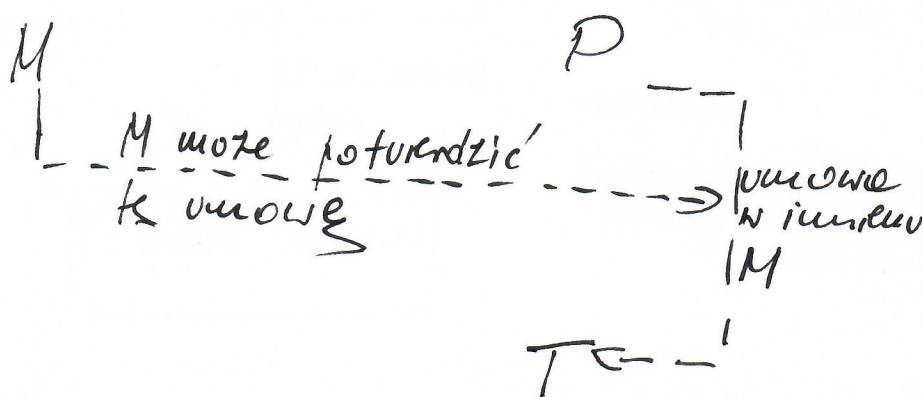 M
P
M może potwierdzić
tę umowę
umowa
w imieniu
M
T